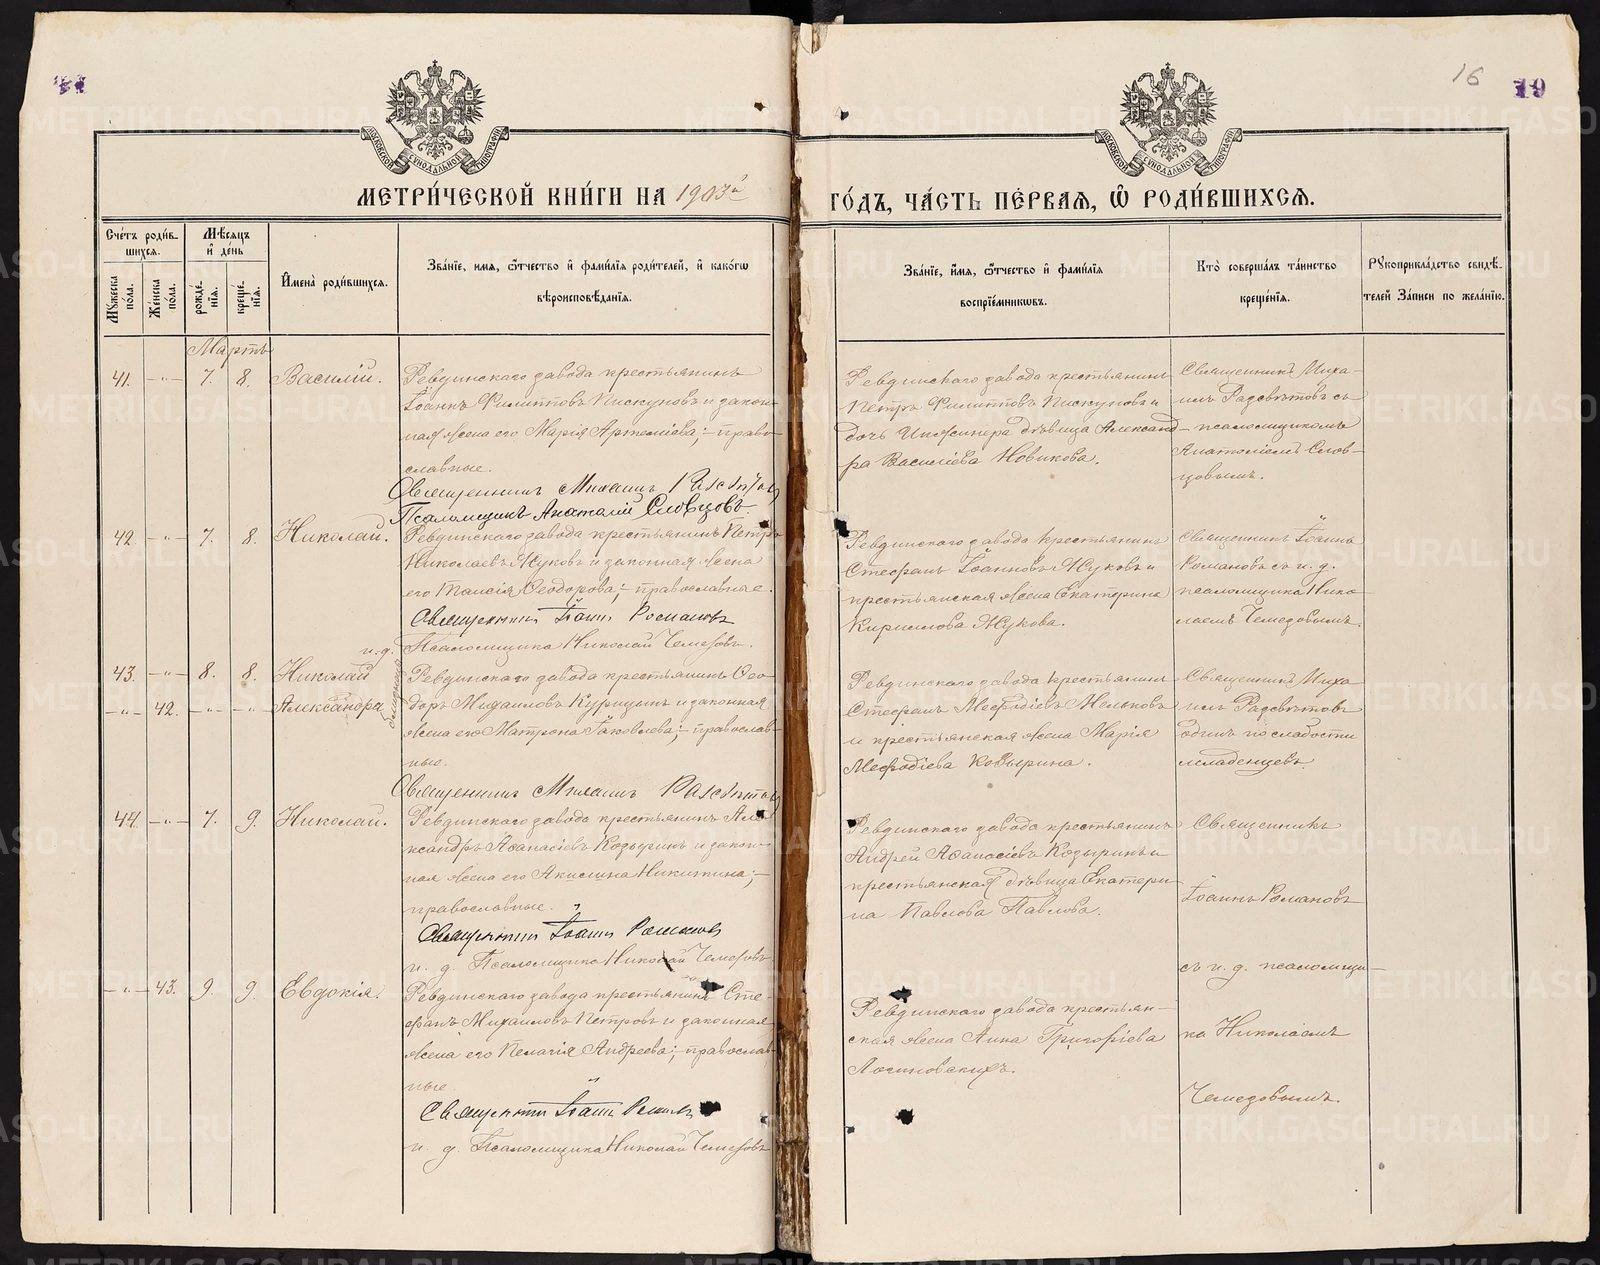 16
19
МОСКОВСКОЙ СѴНОДАЛЬНОЙ ТИПОГРАФІИ
МОСКОВСКОЙ СѴНОДАЛЬНОЙ ТИПОГРАФІИ
МЕТРИ́ЧЕСКОЙ КНИ́ГИ НА 1903й ГО́ДЪ, ЧА́СТЬ ПЕ́РВАЯ, Ѡ҆ РОДИ́ВШИХСЯ.
Сче́тъ роди́в-
шихся.
Мѣ́сяцъ
и҆ де́нь
Мꙋ́жеска
пола.
Же́нска
по́ла.
рожде́-
нїя.
креще́-
нїя.
И҆мена̀ роди́вшихся.
Зва́нїе, имя, ѻ҆́тчество и҆ фами́лїя роди́телей, и҆ како́гѡ
вѣроисповѣ́данїя.
Зва́нїе, и҆́мя, ѻ҆́тчество и҆ фами́лїя
воспрїе́мникѡвъ.
Кто̀ соверша́лъ та́инство
креще́нїя.
Рꙋкоприкла́дство свидѣ́-
телей За́писи по жела́нїю.
Мартъ
41. -"- 7. 8. Василій.
Ревдинскаго завода крестьянинъ
Іоаннъ Филипповъ Пискуновъ и закон-
ная жена его Марія Артемліева;- право-
славные.
Священникъ Михаилъ Разсвѣтовъ
Псаломщикъ Анатолій Словцовъ.
Ревдинскаго завода крестьянинъ
Петръ Филипповъ Пискуновъ и
дочь Инженера дѣвица Александ-
ра Василіева Новикова.
Священникъ Миха-
илъ Разсвѣтовъ съ
псаломщикомъ
Анатоліемъ Слов-
цовымъ.
42. -"- 7. 8. Николай.
Ревдинскаго завода крестьянинъ Петръ
Николаевъ Жуковъ и законная жена
его Таисія Ѳеодорова;- православные.
Священникъ Іоаннъ Романовъ
и. д. Псаломщика Николай Чемезовъ.
Ревдинскаго завода крестьянинъ
Стефанъ Іоанновъ Жуковъ и
крестьянская жена Екатерина
Кириллова Жукова.
Священникъ Іоаннъ
Романовъ съ и. д.
псаломщика Нико-
лаемъ Чемезовымъ.
43. -"- 8. 8. Николай
-"- 42. -"- -"- Александра
близнецы
Ревдинскаго завода крестьянинъ Ѳео-
доръ Михаиловъ Курицынъ и законная
жена его Матрона Іаковлева;- православ-
ные.
Священникъ Михаилъ Разсвѣтовъ
Ревдинскаго завода крестьянинъ
Стефанъ Меѳодіевъ Мельковъ
и крестьянская жена Марія
Меѳодіева Козырина.
Священникъ Миха-
илъ Разсвѣтовъ
одинъ по слабости
младенцевъ.
44. -"- 7. 9. Николай.
Ревдинскаго завода крестьянинъ Але-
ксандръ Аѳанасіевъ Козыринъ и закон-
ная жена его Акилина Никитина;-
православные.
Священникъ Іоаннъ Романовъ
и. д. Псаломщика Николай Чемезовъ
Ревдинскаго завода крестьянинъ
Андрей Аѳанасіевъ Козыринъ и
крестьянская дѣвица Екатери-
на Павлова Павлова.
Священникъ
Іоаннъ Романовъ
съ и. д. псаломщи-
ка Николаемъ
Чемезовымъ.
-"- 43. 9. 9. Евдокія.
Ревдинскаго завода крестьянинъ Сте-
фанъ Михаиловъ Петровъ и законная
жена его Пелагія Андреева;- православ-
ные.
Священникъ Іоаннъ Романовъ
и. д. Псаломщика Николай Чемезовъ
Ревдинскаго завода крестьян-
ская жена Анна Григоріева
Логиновскихъ.
METRIKI.GASO-URAL.RU